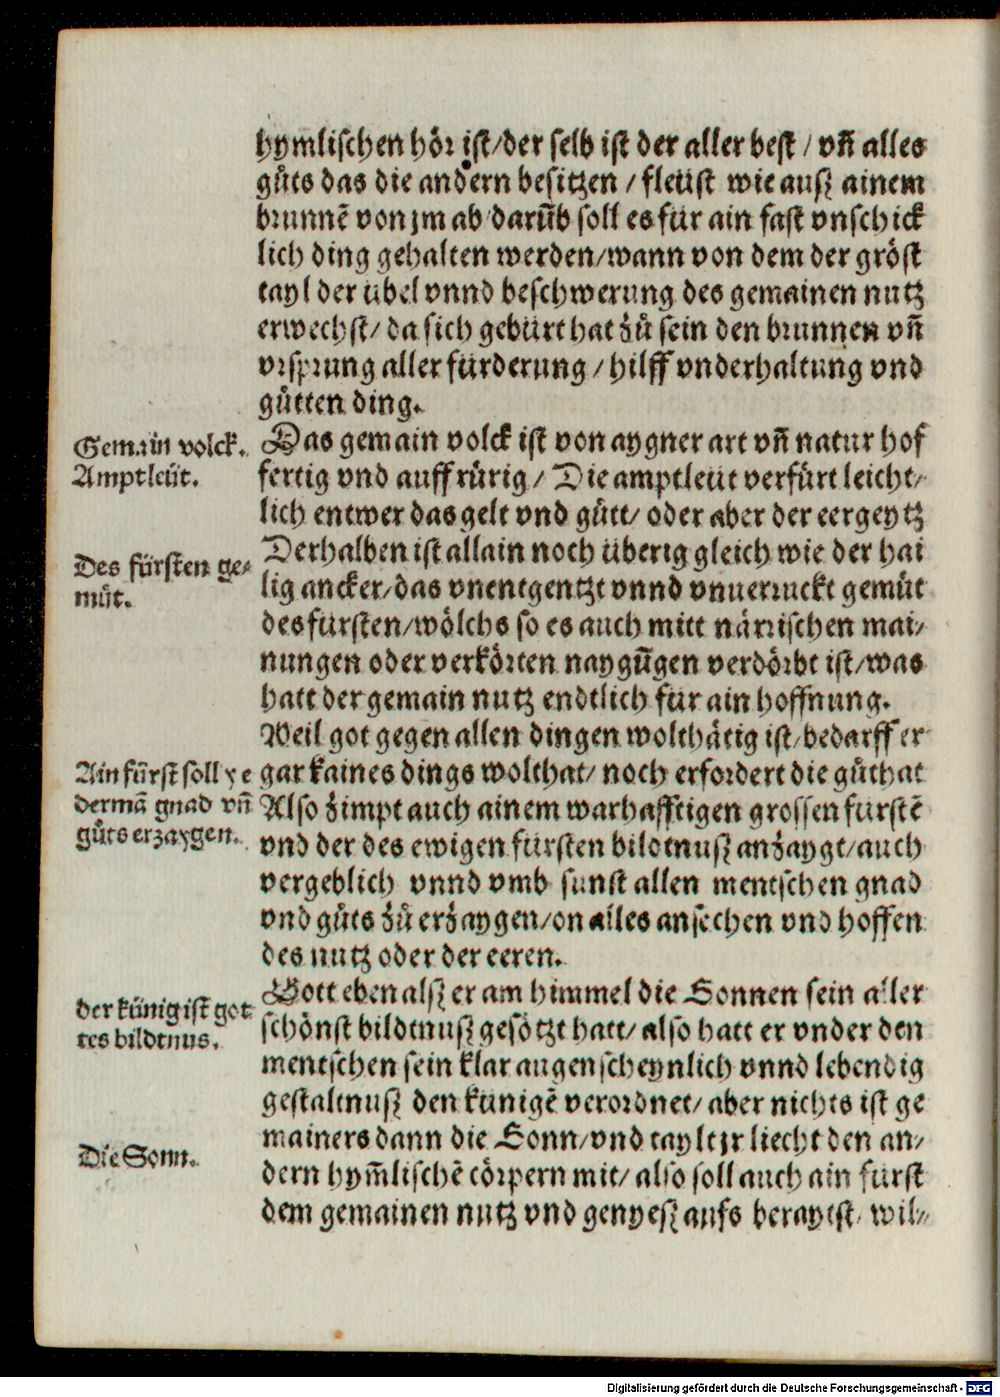 hymlischen hör ist/der selb ist der aller best / vñ alles
güts das die andern besitzen / fleüst wie ausz ainem
brunnē von jm ab darūb soll es für ain fast vnschick
lich ding gehalten werden/wann von dem der gröst
tayl der übel vnnd beschwerung des gemainen nutz
erwechst/ da sich gebürt hat zů sein den brunnen vñ
vrsprung aller fürderung / hilff vnderhaltung vnd
gütten ding.
Gemain volck.
Amptleüt.
Das gemain volck ist von aygner art vñ natur hof
fertig vnd auffrürig / Die amptleüt verfürt leicht/
lich entwer das gelt vnd gütt/ oder aber der eergeytz
Des fürsten ge/
müt.
Derhalben ist allain noch überig gleich wie der hai
lig ancker/das vnentgentzt vnnd vnuerruckt gemüt
des fürsten/wölchs so es auch mitt närrischen mai/
nungen oder verkörten naygūgen verdörbt ist/was
hatt der gemain nutz endtlich für ain hoffnung.
Ain fürst soll ye
dermā gnad vñ
güts erzaygen.
Weil got gegen allen dingen wolthätig ist/bedarff er
gar kaines dings wolthat/ noch erfordert die güthat
Also zimpt auch ainem warhafftigen grossen fürstē
vnd der des ewigen fürsten bildtnusz anzaygt/auch
vergeblich vnnd vmb sunst allen mentschen gnad
vnd güts zů erzaygen/on alles ansechen vnd hoffen
des nutz oder der eeren.
der künig ist got
tes bildtnus.
Gott eben alsz er am himmel die Sonnen sein aller
schönst bildtnusz gesötzt hatt/ also hatt er vnder den
mentschen sein klar augenscheynlich vnnd lebendig
gestaltnusz den künigē verordnet/ aber nichts ist ge
Die Sonn.
mainers dann die Sonn/vnd taylt jr liecht den an/
dern hym̄lischē cörpern mit/ also soll auch ain fürst
dem gemainen nutz vnd genyesz aufs beraytst/ wil/
Digitalisierung gefördert durch die Deutsche Forschungsgemeinschaft - DFG